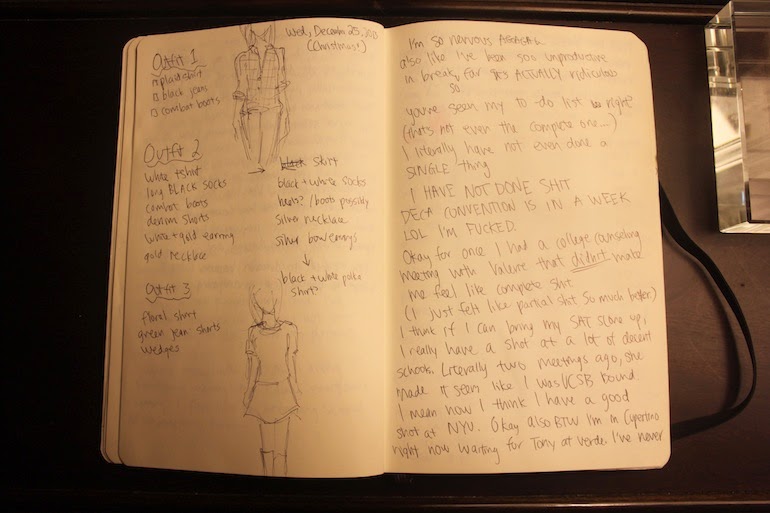 Wed, December 25, 2013
(Christmas!)
Outfit 1
plaid shirt
black jeans
combat boots
Outfit 2
white tshirt
long BLACK socks
combat boots
denim shorts
white + gold earring
gold necklace
→ black skirt
black + white socks
heels? / boots possibly
silver necklace
silver bow earrings
↓
black + white polka
shirt?
Outfit 3
floral shirt
green jean shorts
wedges
I'm so nervous
also like I've been soo unproductive
in break, so far it's ACTUALLY ridiculous
you've seen my to do list right?
(thats not even the complete one...)
I literally have not even done a
SINGLE thing
I HAVE NOT DONE SHIT
DECA CONVENTION IS IN A WEEK
LOL I'M FUCKED.
Okay for once I had a college counseling
meeting with Valerie that didn't make
me feel like complete shit
(I just felt like partial shit so much better)
I think if I can bring my SAT score up,
I really have a shot at a lot of decent
schools. Literally two meetings ago, she
made it seem like I was UCSB bound
I mean now I think I have a good
shot at NYU. Okay also BTW I'm in Cupertino
right now waiting for Tony at Verde. I've never